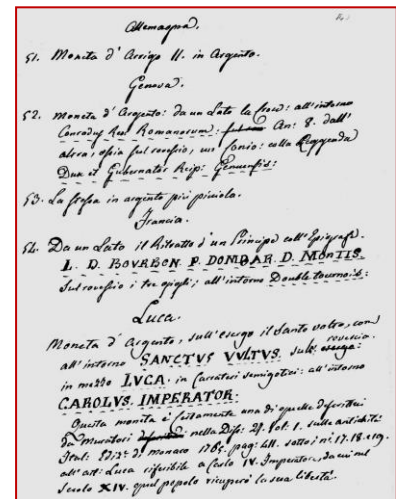 Allemagna.
51. Moneta d' Arrigo II. in Argento.
Genova.
52. Moneta d' Argento: da un Lato la Croce: all' intorno
Conradus Rex Romanorum: An: 8. dall'
altra, ossia sul rovescio, un conio: colla Leggenda
Dux et Gubernator Reip: Genuensis:
53. La stessa in argento più piccola.
Francia.
54. Da un Lato il Ritratto d' un Principe coll' Epigrafe
L. D. BOVRBON. P. DOMBAR. D. MONTIS.
sul rovescio i tre gigli; all' intorno Double tournois:
Luca.
Moneta d' Argento, sull' esergo il Santo volto, con
all' intorno SANCTVS VVLTVS. sul rovescio
in mezzo LVCA. in Caratteri semigotici: all' intorno
CAROLVS. IMPERATOR:
Questa moneta è certamente una di quelle descritte
da Muratori nella Diss: 27. sulle antichità
Ital: di Monaco 1765. pag: sotto i n: 17. 18. e 19.
all' art: Luca riferibile a Carlo IV. Imperatore, da cui nel
Secolo XIV. quel popolo ricuperò la sua libertà.